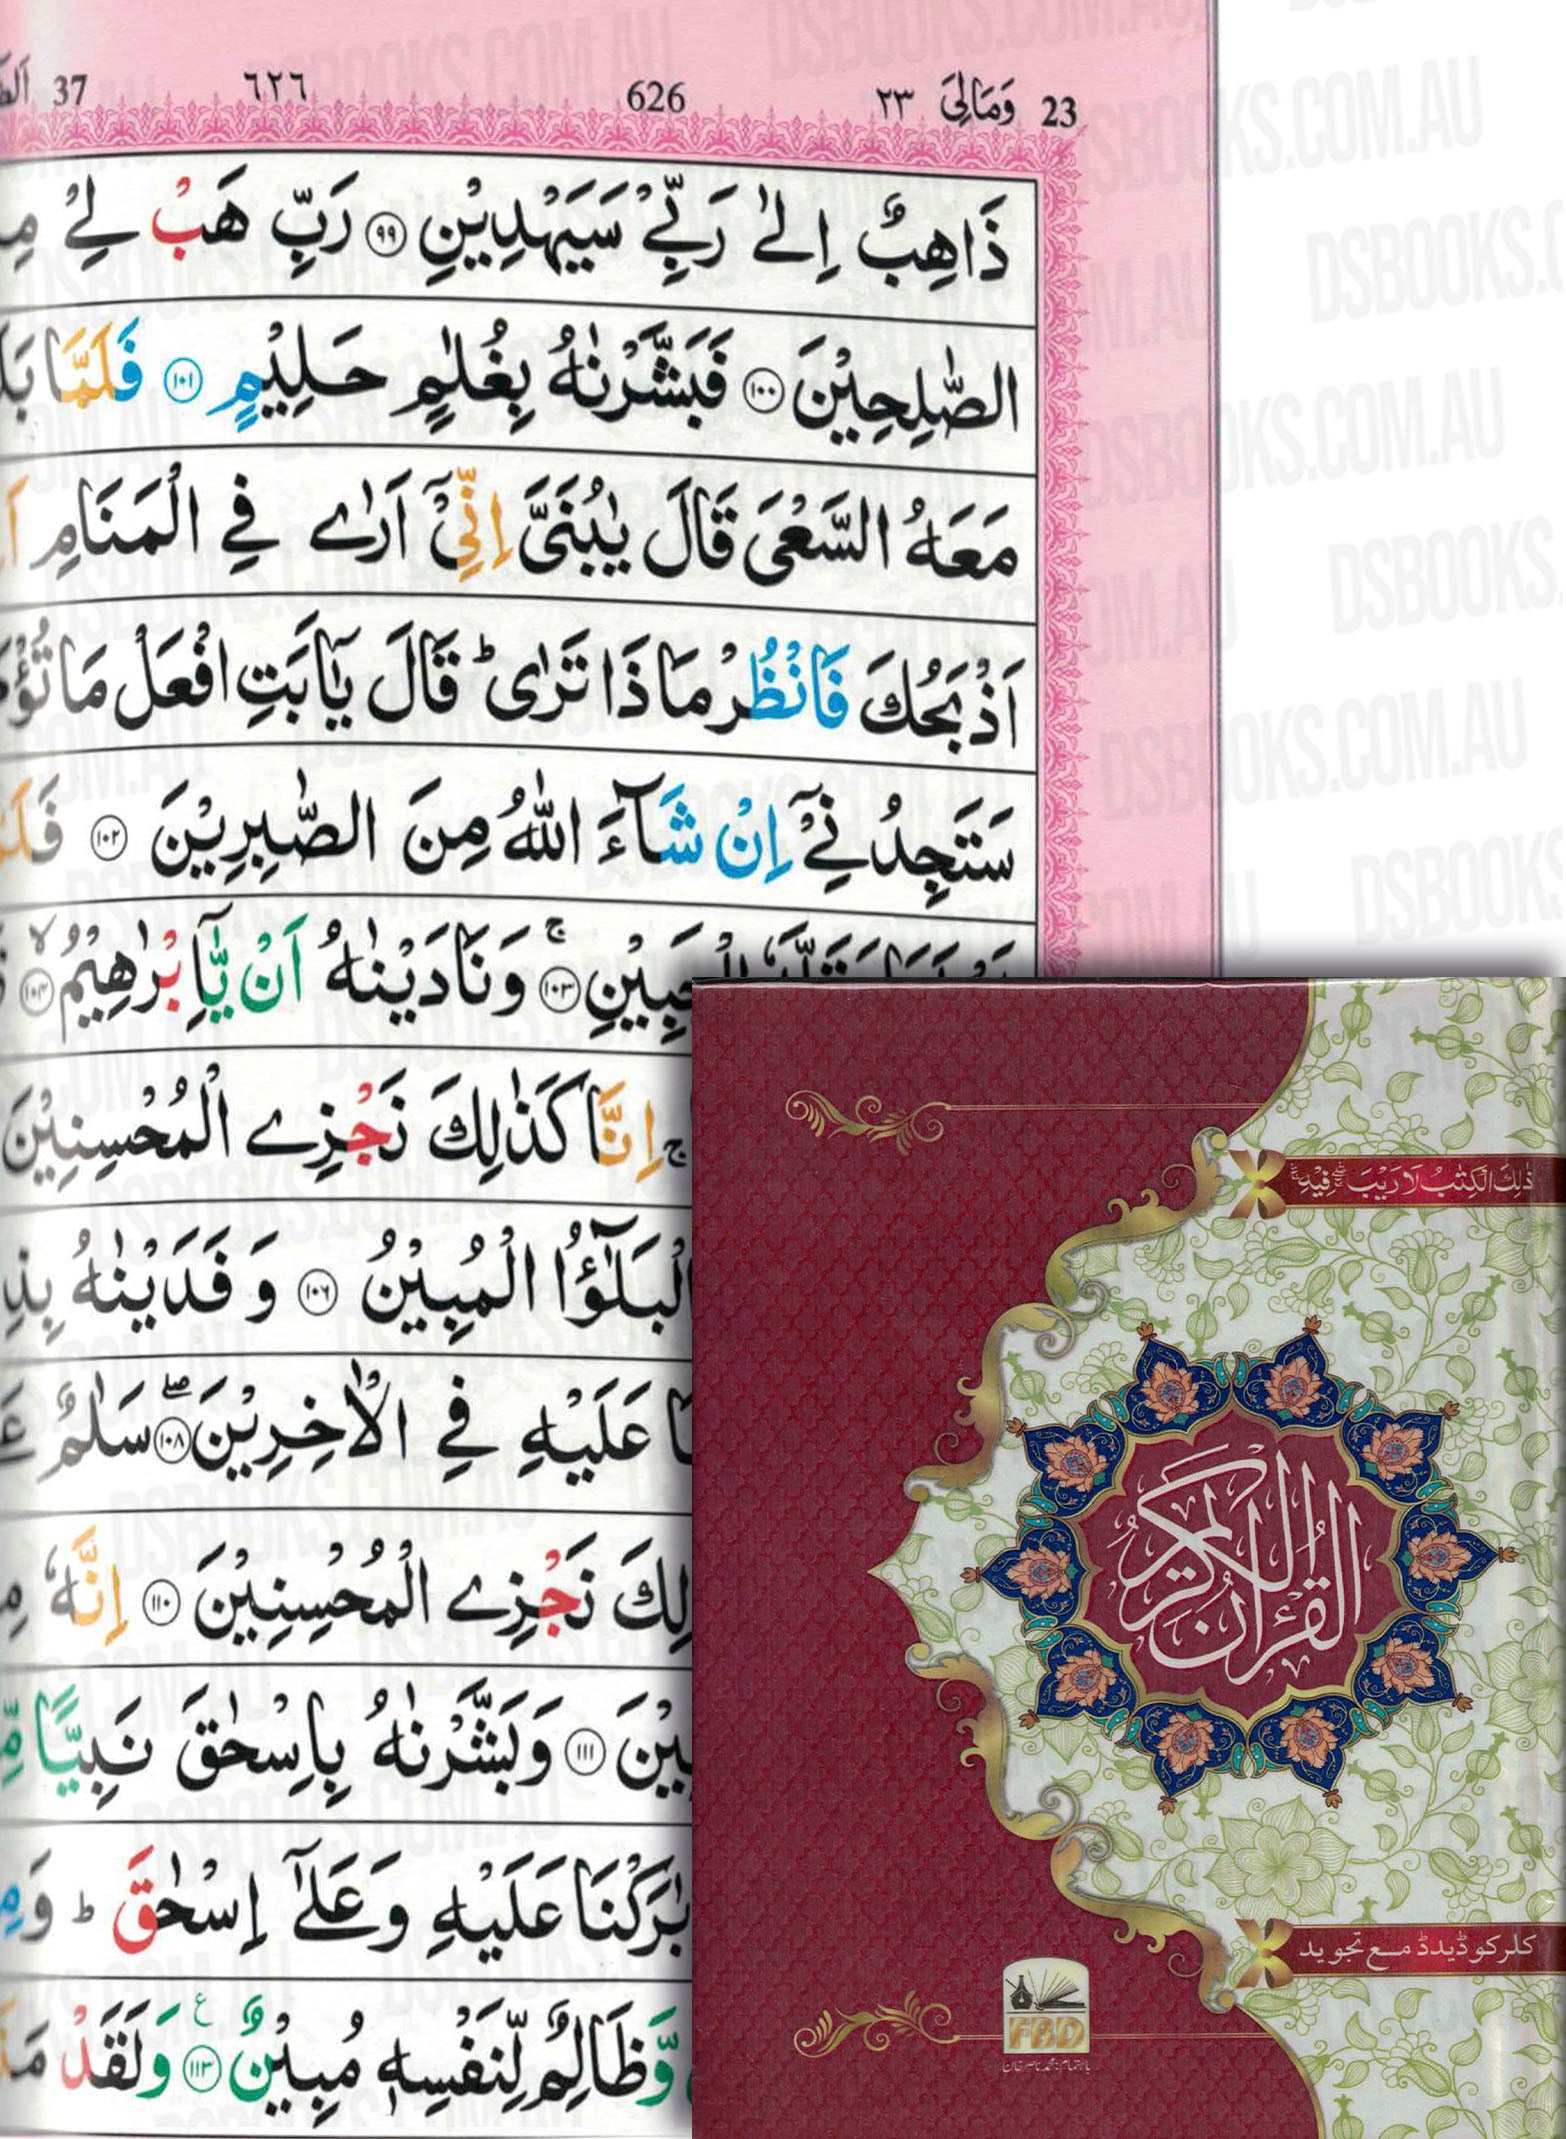 23 وَمَالِیَ ٢٣ 626 ٦٢٦ 37
ذَاهِبٌ اِلٰى رَبِّيْ سَيَهْدِيْنِ ۹۹ رَبِّ هَبْ لِيْ
الصّٰلِحِيْنَ ۱۰۰ فَبَشَّرْنٰهُ بِغُلٰمٍ حَلِيْمٍ ۱۰۱ فَلَمَّا
مَعَهُ السَّعْيَ قَالَ يٰبُنَيَّ اِنِّيْٓ اَرٰى فِي الْمَنَامِ
اَذْبَحُكَ فَانْظُرْ مَاذَا تَرٰى ؕ قَالَ يٰٓاَبَتِ افْعَلْ مَا
سَتَجِدُنِيْٓ اِنْ شَآءَ اللّٰهُ مِنَ الصّٰبِرِيْنَ ۱۰۲
وَنَادَيْنٰهُ اَنْ يّٰٓاِبْرٰهِيْمُ ۱۰۴ ۙ
ۚ اِنَّا كَذٰلِكَ نَجْزِي الْمُحْسِنِيْنَ
الْبَلٰٓؤُا الْمُبِيْنُ ۱۰۶ وَفَدَيْنٰهُ
عَلَيْهِ فِي الْاٰخِرِيْنَ ۱۰۸ ۖ سَلٰمٌ
نَجْزِي الْمُحْسِنِيْنَ ۱۱۰ اِنَّهٗ
۱۱۱ وَبَشَّرْنٰهُ بِاِسْحٰقَ نَبِيًّا
بٰرَكْنَا عَلَيْهِ وَعَلٰٓى اِسْحٰقَ ؕ
وَّظَالِمٌ لِّنَفْسِهٖ مُبِيْنٌ ۱۱۳ ع وَلَقَدْ
ذٰلِكَ الْكِتٰبُ لَا رَيْبَ فِيْهِ
القرآن الكريم
کلر کوڈیڈ مع تجوید
FBD
باہتمام: محمد ناصر خان
DSBOOKS.COM.AU